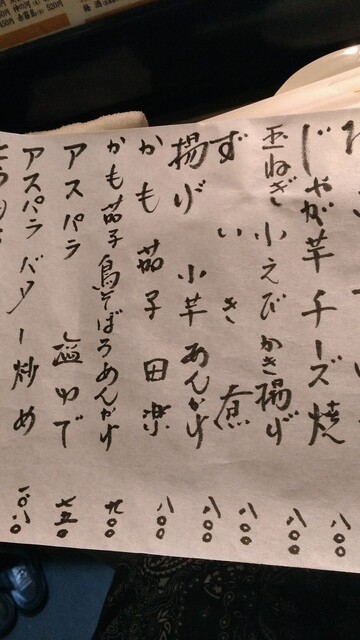 じゃが芋チーズ焼 八〇〇
玉ねぎ小えびかき揚げ 八〇〇
ずいき煮 八〇〇
揚げ小芋あんかけ 八〇〇
かも茄子田楽 八〇〇
かも茄子鳥そぼろあんかけ 九〇〇
アスパラ塩ゆで 七五〇
アスパラバター炒め 八〇〇